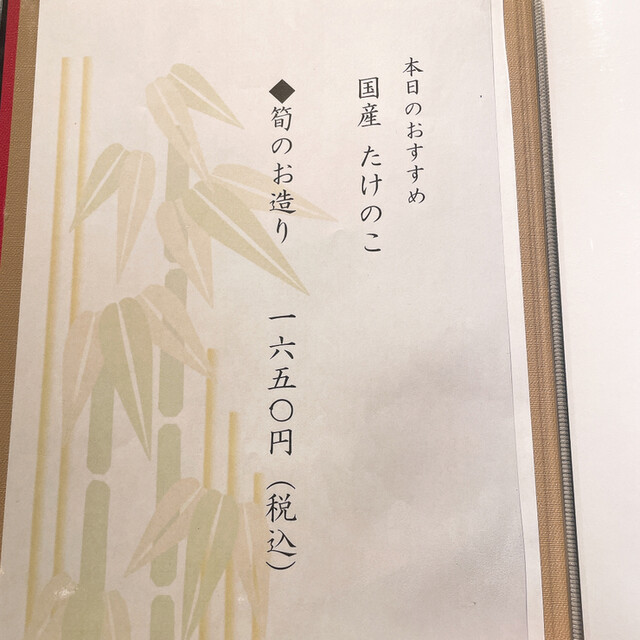 本日のおすすめ
国産 たけのこ
◆筍のお造り 一六五〇円（税込）